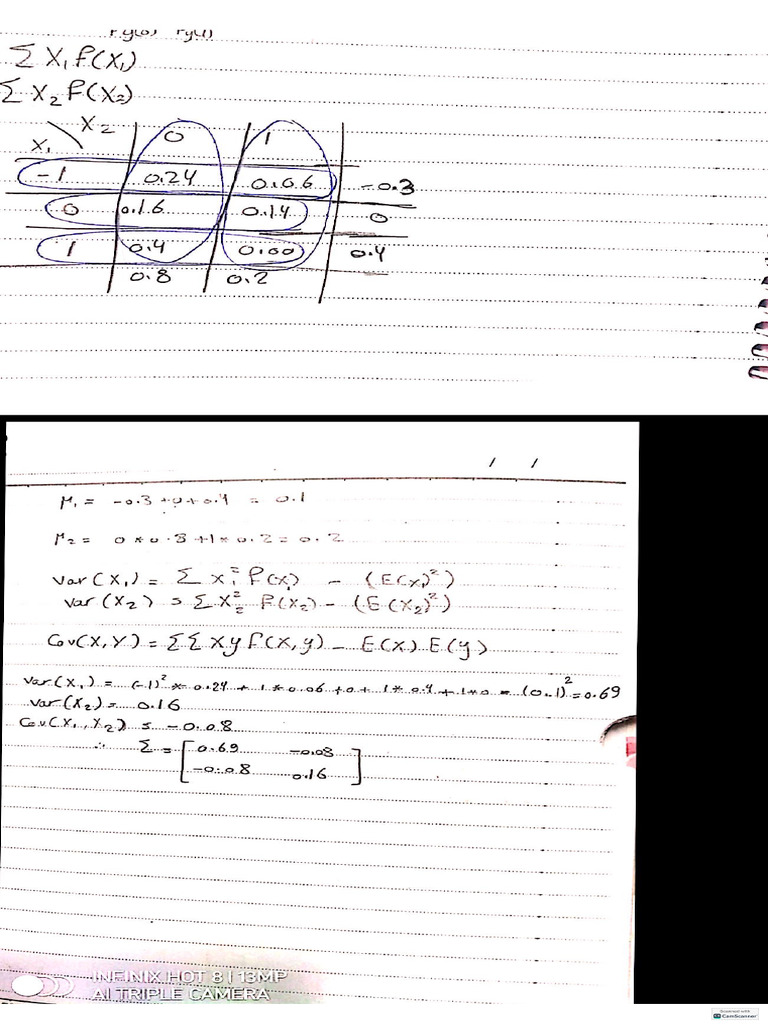 Py(0) Py(1)
Σ X₁ P(X₁)
Σ X₂ P(X₂)
X₁ \ X₂ | 0 | 1 |
-1 | 0.24 | 0.06 | -0.3
0 | 0.16 | 0.14 | 0
1 | 0.4 | 0.00 | 0.4
0.8 | 0.2
/ /
μ₁ = -0.3 + 0 + 0.4 = 0.1
μ₂ = 0 * 0.8 + 1 * 0.2 = 0.2
var(X₁) = Σ X₁² P(X₁) - (E(X₁)²)
var(X₂) = Σ X₂² P(X₂) - (E(X₂)²)
Cov(X,Y) = ΣΣ Xy P(X,y) - E(X) E(y)
var(X₁) = (-1)² * 0.24 + 1 * 0.06 + 0 + 1 * 0.4 + 1 * 0 - (0.1)² = 0.69
var(X₂) = 0.16
Cov(X₁, X₂) = -0.08
∴ Σ = [0.69 -0.08
-0.08 0.16]
INFINIX HOT 8 | 13MP
AI TRIPLE CAMERA
Scanned with
CamScanner